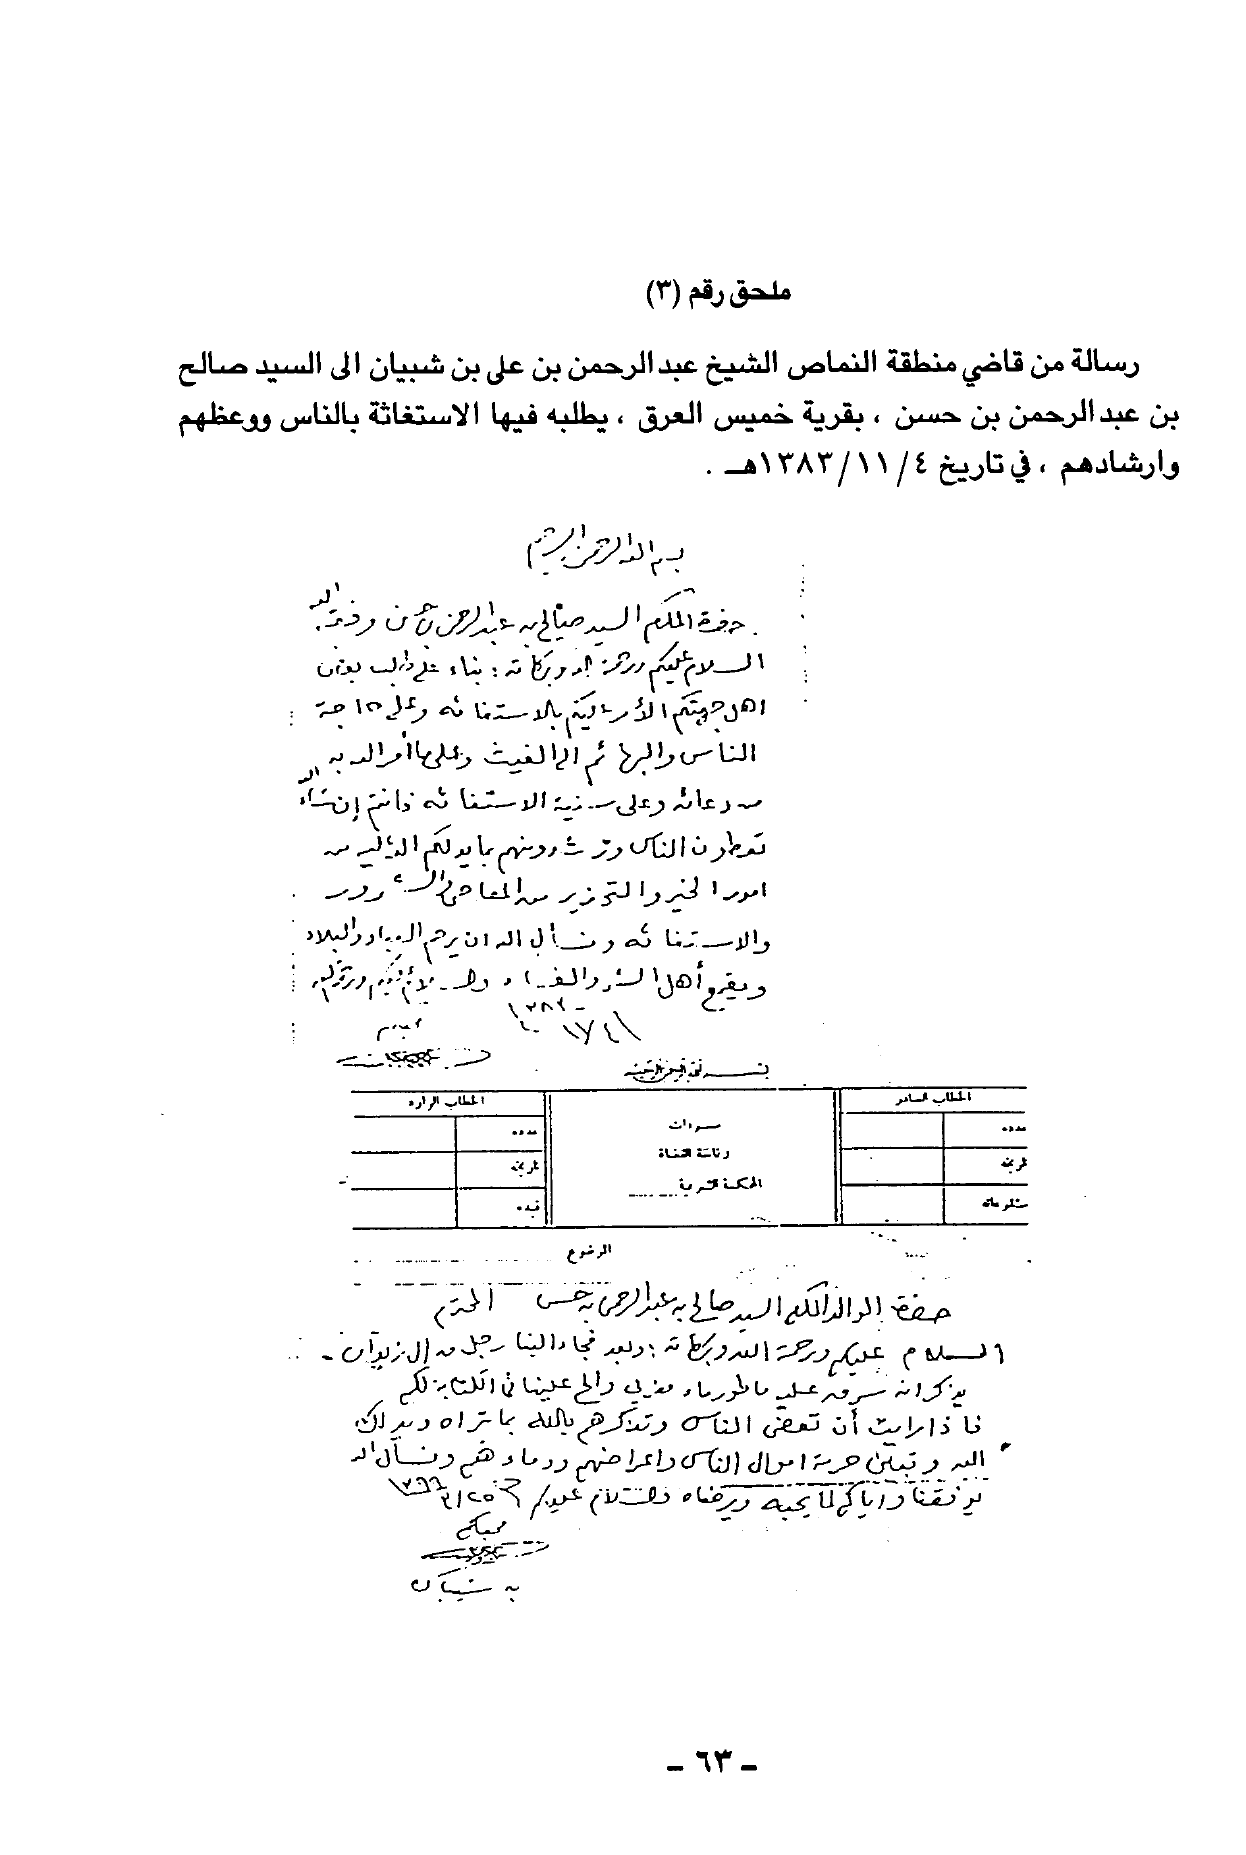 ملحق رقم (٣)
رسالة من قاضي منطقة النماص الشيخ عبد الرحمن بن علي بن شبيان الى السيد صالح
بن عبد الرحمن بن حسن ، بقرية خميس العرق ، يطلبه فيها الاستغاثة بالناس ووعظهم
وارشادهم ، في تاريخ ٤/ ١١/ ١٣٨٣هـ .
بسم الله الرحمن الرحيم
حضرة المكرم السيد صالح بن عبد الرحمن بن حسن وفقه الله
السلام عليكم ورحمة الله وبركاته : بناء على طلب بعض
اهل جهتكم الأمر عليكم بالاستغاثه وعلى حاجة
الناس والبهائم الى الغيث وعلى ما أمر الله به
من دعائه وعلى سنية الاستغاثه فانتم إن شاء الله
تعظون الناس وترشدونهم بما يدلكم الله اليه من
امور الخير والتحذير من المعاصي والشرور
والاستغاثه ونسأل الله ان يرحم العباد والبلاد
ويقمع أهل الشر والفساد والسلام عليكم ورحمة الله
محبكم
بسم الله الرحمن الرحيم
الخطاب الصادر
عدده
تاريخه
مشفوعاته
مسودات
رئاسة القضاة
المحكمة الشرعية
الخطاب الوارد
عدده
تاريخه
قيده
الموضوع
حضرة الوالد المكرم السيد صالح بن عبد الرحمن بن حسن المحترم
السلام عليكم ورحمة الله وبركاته : وبعد فجاء الينا رجل من آل زيدان
يذكر انه سرق عليه والح علينا في الكتابة لكم
فاذا رايت أن تعظ الناس وتذكرهم بالله بما تراه ويراك
الله وتبين حرمة اموال الناس واعراضهم ودماءهم ونسأل الله
يوفقنا واياكم لما يحبه ويرضاه والسلام عليكم
محبكم
بن شبيان
- ٦٣ -